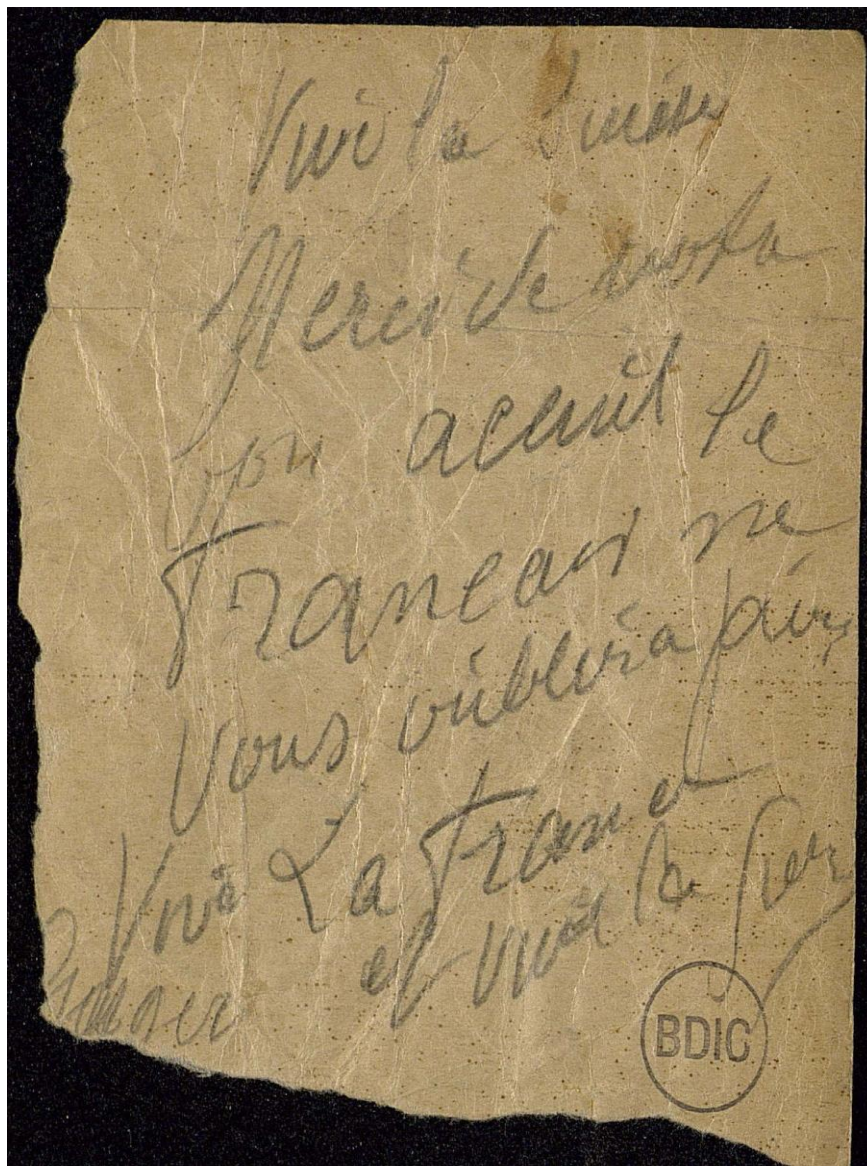 Vive la Suisse
Merci de votre
bon acceuil le
Francais ne
vous oublira pas
Vive La France
et vive la
BDIC